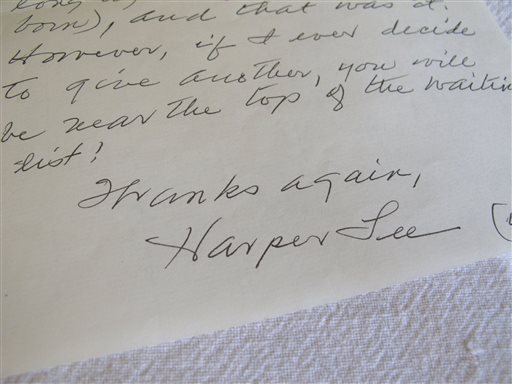 born), and that was it.
However, if I ever decide
to give another, you will
be near the top of the waiting
list!
Thanks again,
Harper Lee